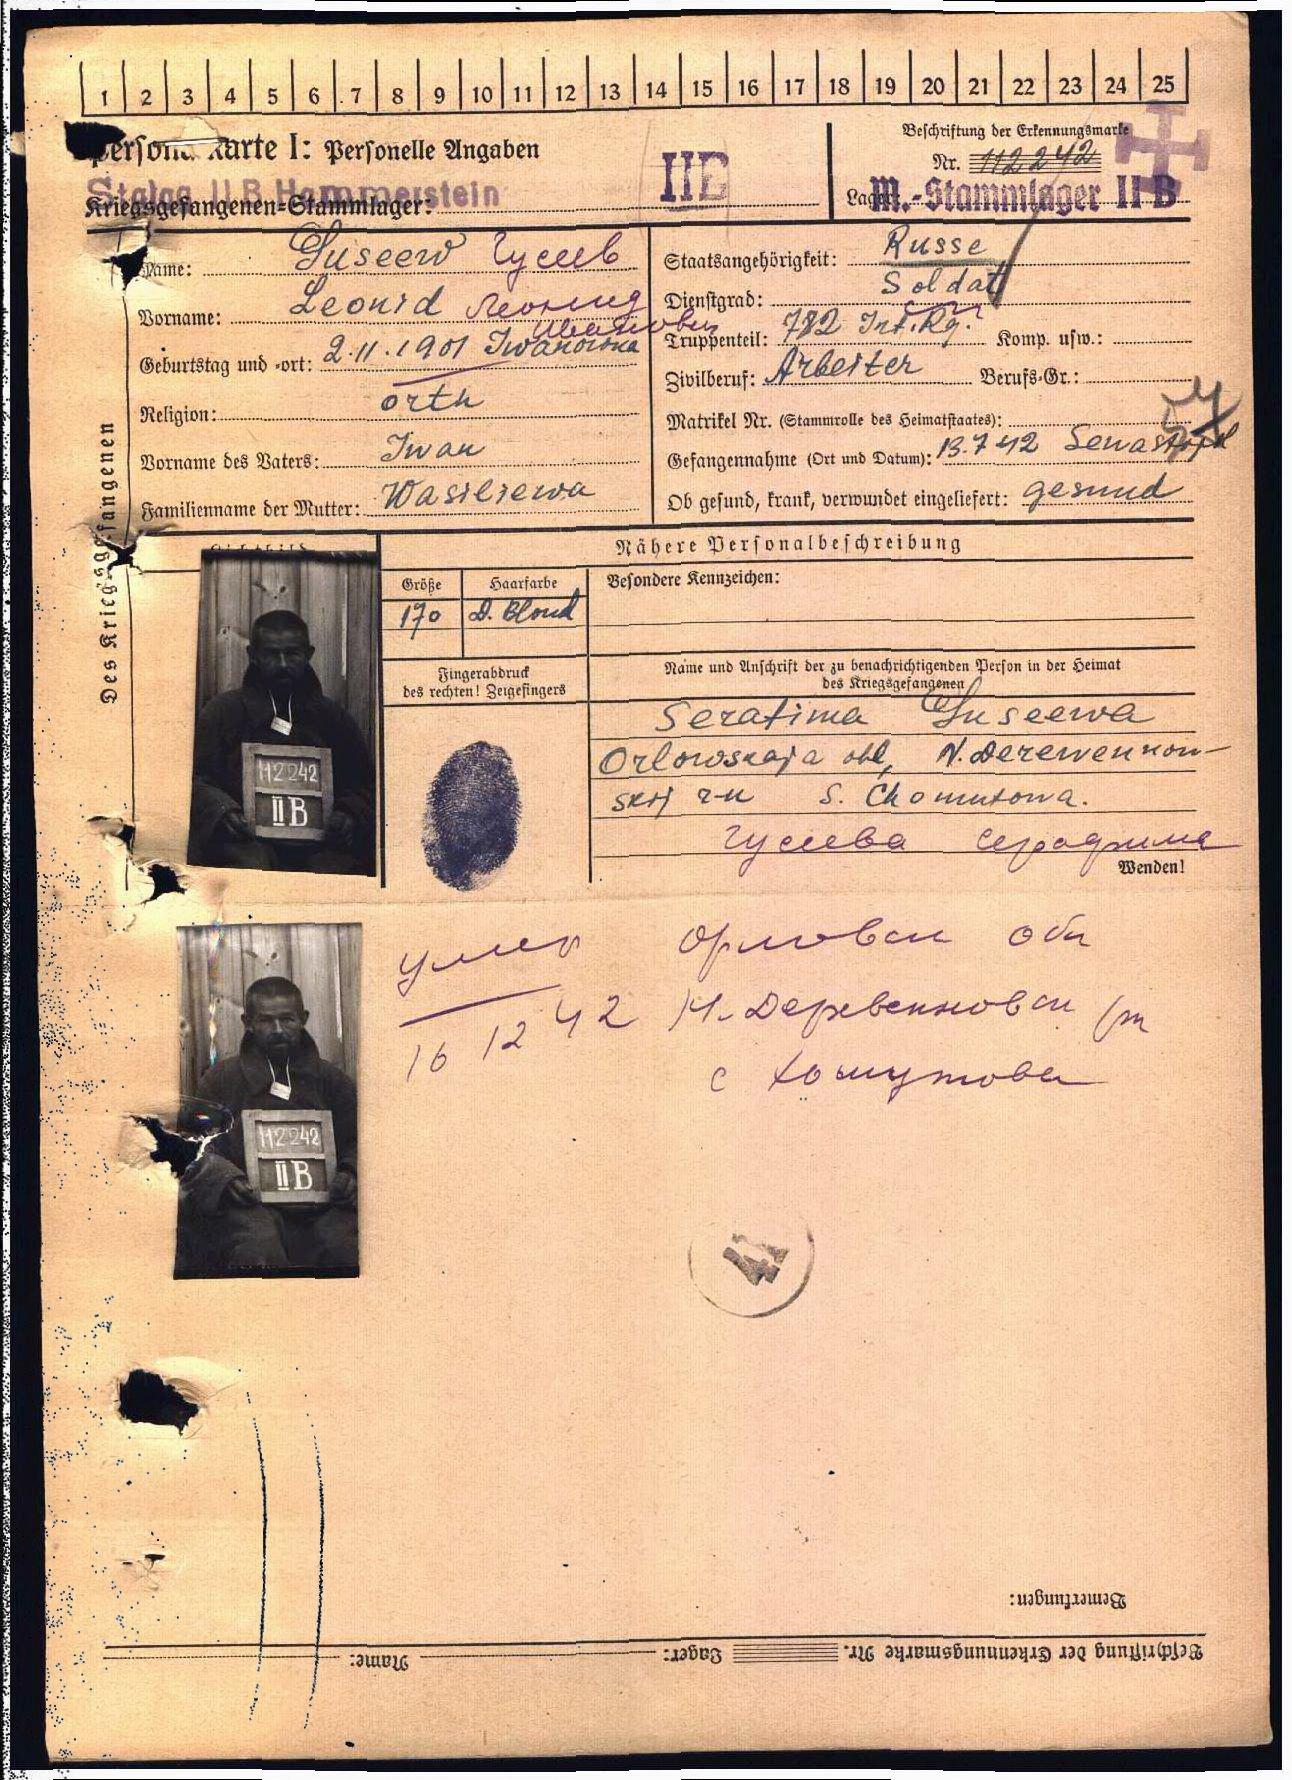 1 2 3 4 5 6 7 8 9 10 11 12 13 14 15 16 17 18 19 20 21 22 23 24 25
Karte I: Personelle Angaben
Beschriftung der Erkennungsmarke
Nr. 112242
Stalag II B Hammerstein
IIB
Kriegsgefangenen-Stammlager:
Lager: M.-Stammlager II B
Des Kriegsgefangenen
Name: Guseew Гусев
Vorname: Leonid Леонид
Иванович
Geburtstag und -ort: 2.11.1901 Iwanowna
Religion: orth
Vorname des Vaters: Iwan
Familienname der Mutter: Wasiliewa
Staatsangehörigkeit: Russe
Dienstgrad: Soldat
Truppenteil: 782 Inf. Rg. Komp. usw.:
Zivilberuf: Arbeiter Berufs-Gr.:
Matrikel Nr. (Stammrolle des Heimatstaates):
Gefangennahme (Ort und Datum): 13.7 42 Sewastopol
Ob gesund, krank, verwundet eingeliefert: gesund
Lichtbild
Nähere Personalbeschreibung
Größe Haarfarbe
170 D. Blond
Besondere Kennzeichen:
Fingerabdruck
des rechten! Zeigefingers
Name und Anschrift der zu benachrichtigenden Person in der Heimat
des Kriegsgefangenen
Serafima Guseewa
Orlowskaja obl, N. Derewenkow-
skij r-n S. Chomutowa.
Гусева Серафима
Wenden!
112242
II B
умер
16 12 42
Орловск обл
Н. Деревеньковск рн
с Хомутова
112242
II B
41
Bemerkungen:
Beschriftung der Erkennungsmarke Nr. Lager: Name: